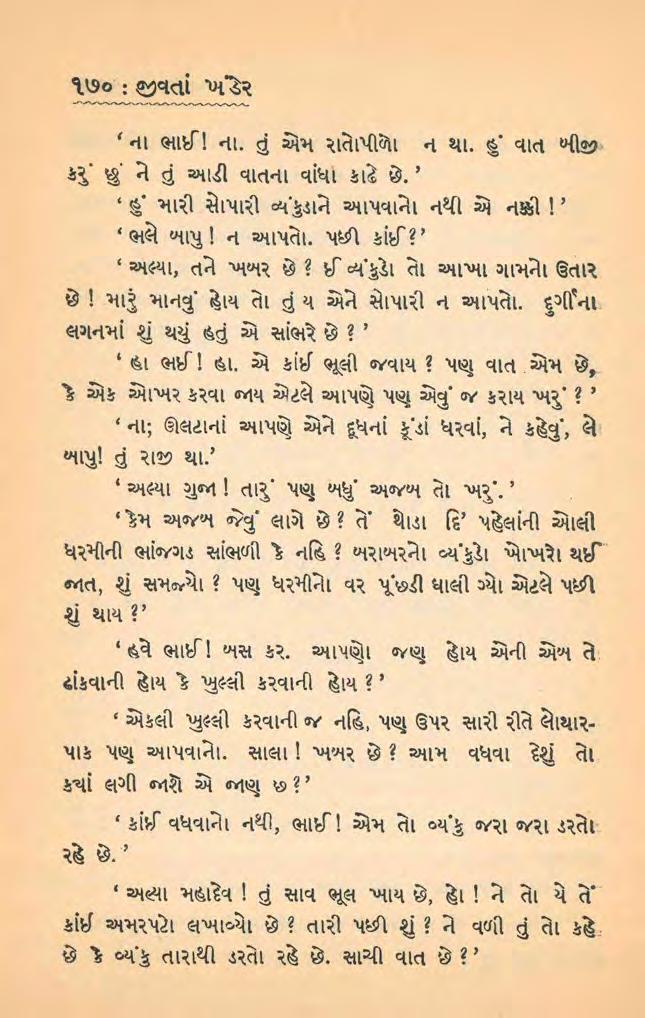 ૧૭૦ : જીવતાં ખંડેર
‘ ના ભાઈ! ના. તું એમ રાતોપીળો ન થા. હું વાત બીજી
કરું છું ને તું આડી વાતના વાંધા કાઢે છે. ’
‘ હું મારી સોપારી વ્યંકુડાને આપવાનો નથી એ નક્કી ! ’
‘ ભલે બાપુ ! ન આપતો. પછી કાંઈ?’
‘ અલ્યા, તને ખબર છે ? ઈ વ્યંકુડો તો આખા ગામનો ઉતાર
છે ! મારું માનવું હોય તો તું ય એને સોપારી ન આપતો. દુર્ગીના
લગનમાં શું થયું હતું એ સાંભરે છે ? ’
‘ હા ભઈ! હા. એ કાંઈ ભૂલી જવાય ? પણ વાત એમ છે,
કે એક ઓખર કરવા જાય એટલે આપણે પણ એવું જ કરાય ખરું ? ’
‘ ના; ઊલટાનાં આપણે એને દૂધનાં કૂંડાં ધરવાં, ને કહેવું, લે
બાપુ! તું રાજી થા.’
‘ અલ્યા ગુજા ! તારું પણ બધું અજબ તો ખરું. ’
‘ કેમ અજબ જેવું લાગે છે ? તેં થોડા દિ’ પહેલાંની ઓલી
ધરમીની ભાંજગડ સાંભળી કે નહિ ? બરાબરનો વ્યંકુડો ખોખરો થઈ
જાત, શું સમજ્યો ? પણ ધરમીનો વર પૂંછડી ઘાલી ગ્યો એટલે પછી
શું થાય ?’
‘ હવે ભાઈ! બસ કર. આપણો જણ હોય એની એબ તે
ઢાંકવાની હોય કે ખુલ્લી કરવાની હોય ? ’
‘ એકલી ખુલ્લી કરવાની જ નહિ, પણ ઉપર સારી રીતે લોથાર-
પાક પણ આપવાનો. સાલા ! ખબર છે ? આમ વધવા દેશું તો
ક્યાં લગી જાશે એ જાણ છ ?’
‘ કાંઈ વધવાનો નથી, ભાઈ! એમ તો વ્યંકુ જરા જરા ડરતો
રહે છે. ’
‘ અલ્યા મહાદેવ ! તું સાવ ભૂલ ખાય છે, હો ! ને તો યે તેં
કાંઈ અમરપટો લખાવ્યો છે ? તારી પછી શું ? ને વળી તું તો કહે
છે કે વ્યંકુ તારાથી ડરતો રહે છે. સાચી વાત છે ?’